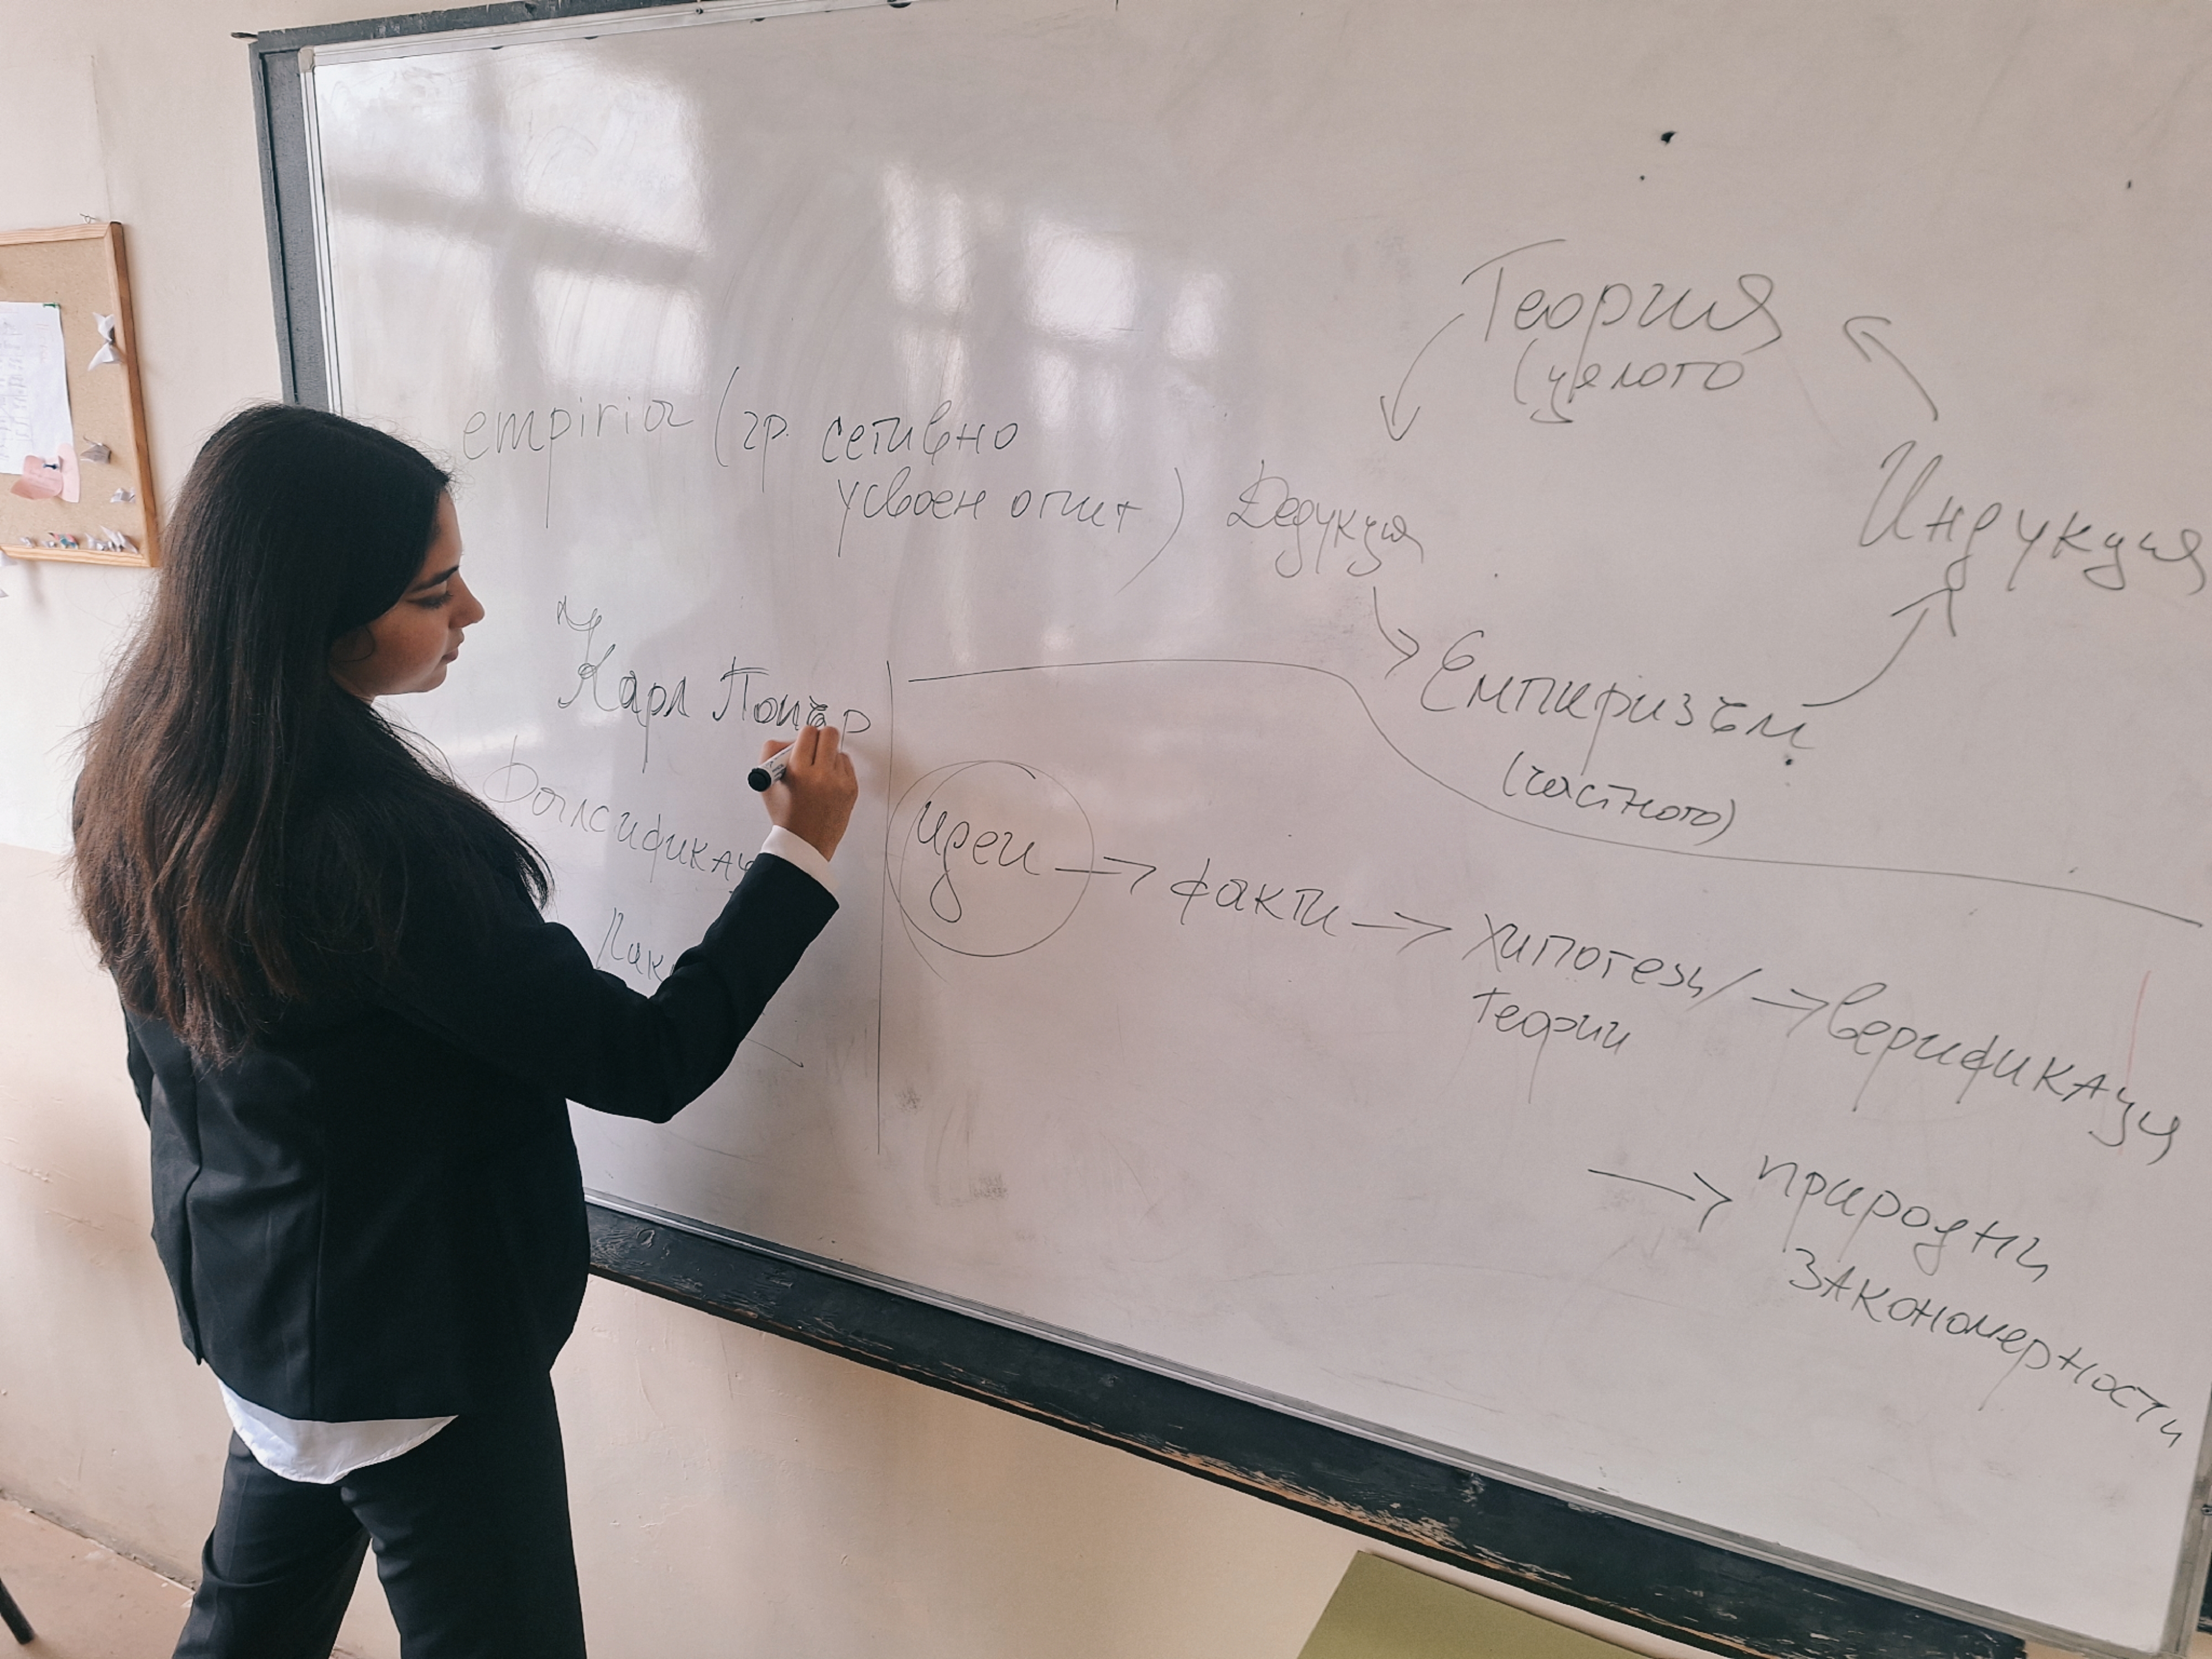 empiria (гр. сетивно
усвоен опит)
Теория
(цялото
Дедукция
Индукция
Емпиризъм
(частното)
Карл Попър
Фалсификац
идеи → факти → хипотези/ → верификация
теории
→ природни
закономерности